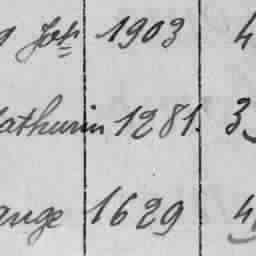 Jph 1903 4
athurin 1281. 3
ange 1629 4